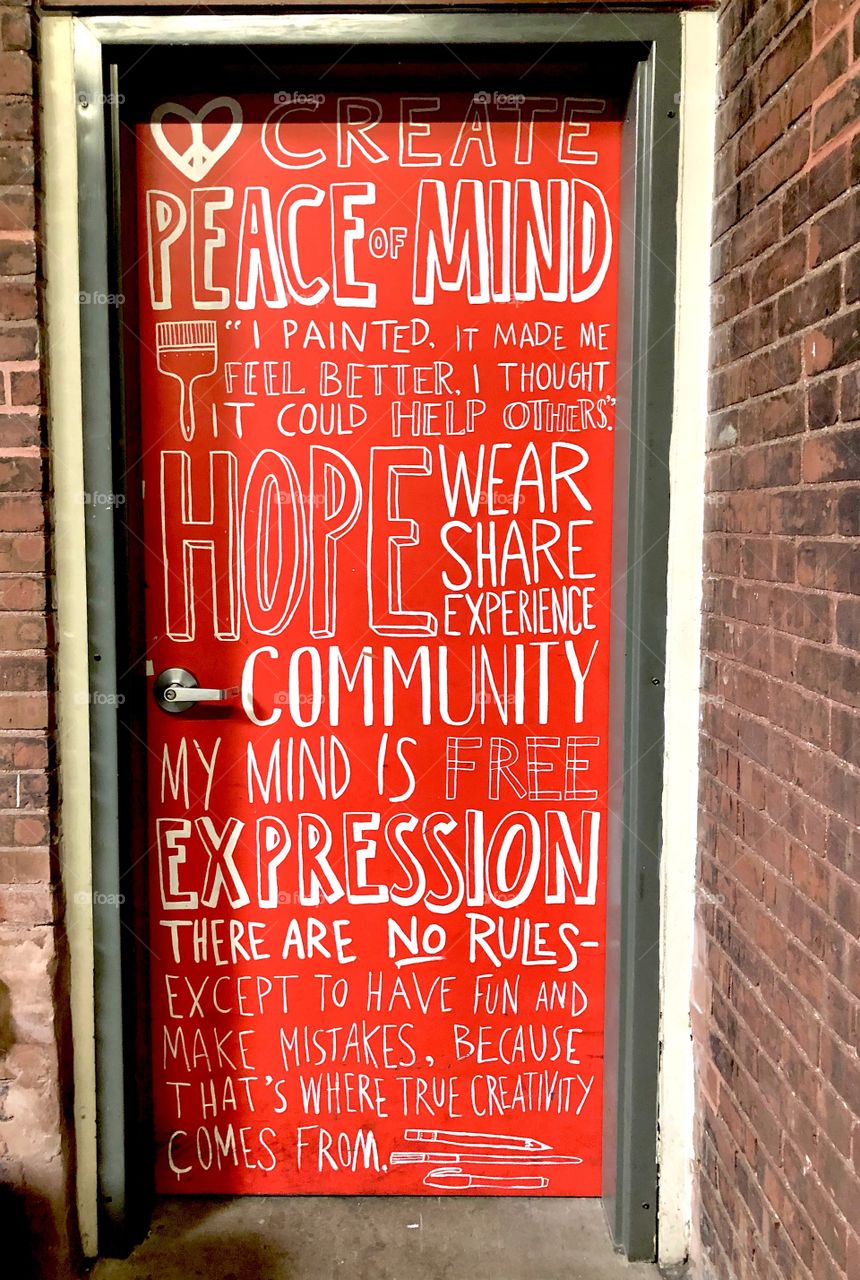 CREATE
PEACE OF MIND
“I PAINTED. IT MADE ME
FEEL BETTER. I THOUGHT
IT COULD HELP OTHERS”.
HOPE
WEAR
SHARE
EXPERIENCE
COMMUNITY
MY MIND IS FREE
EXPRESSION
THERE ARE NO RULES-
EXCEPT TO HAVE FUN AND
MAKE MISTAKES, BECAUSE
THAT'S WHERE TRUE CREATIVITY
COMES FROM.